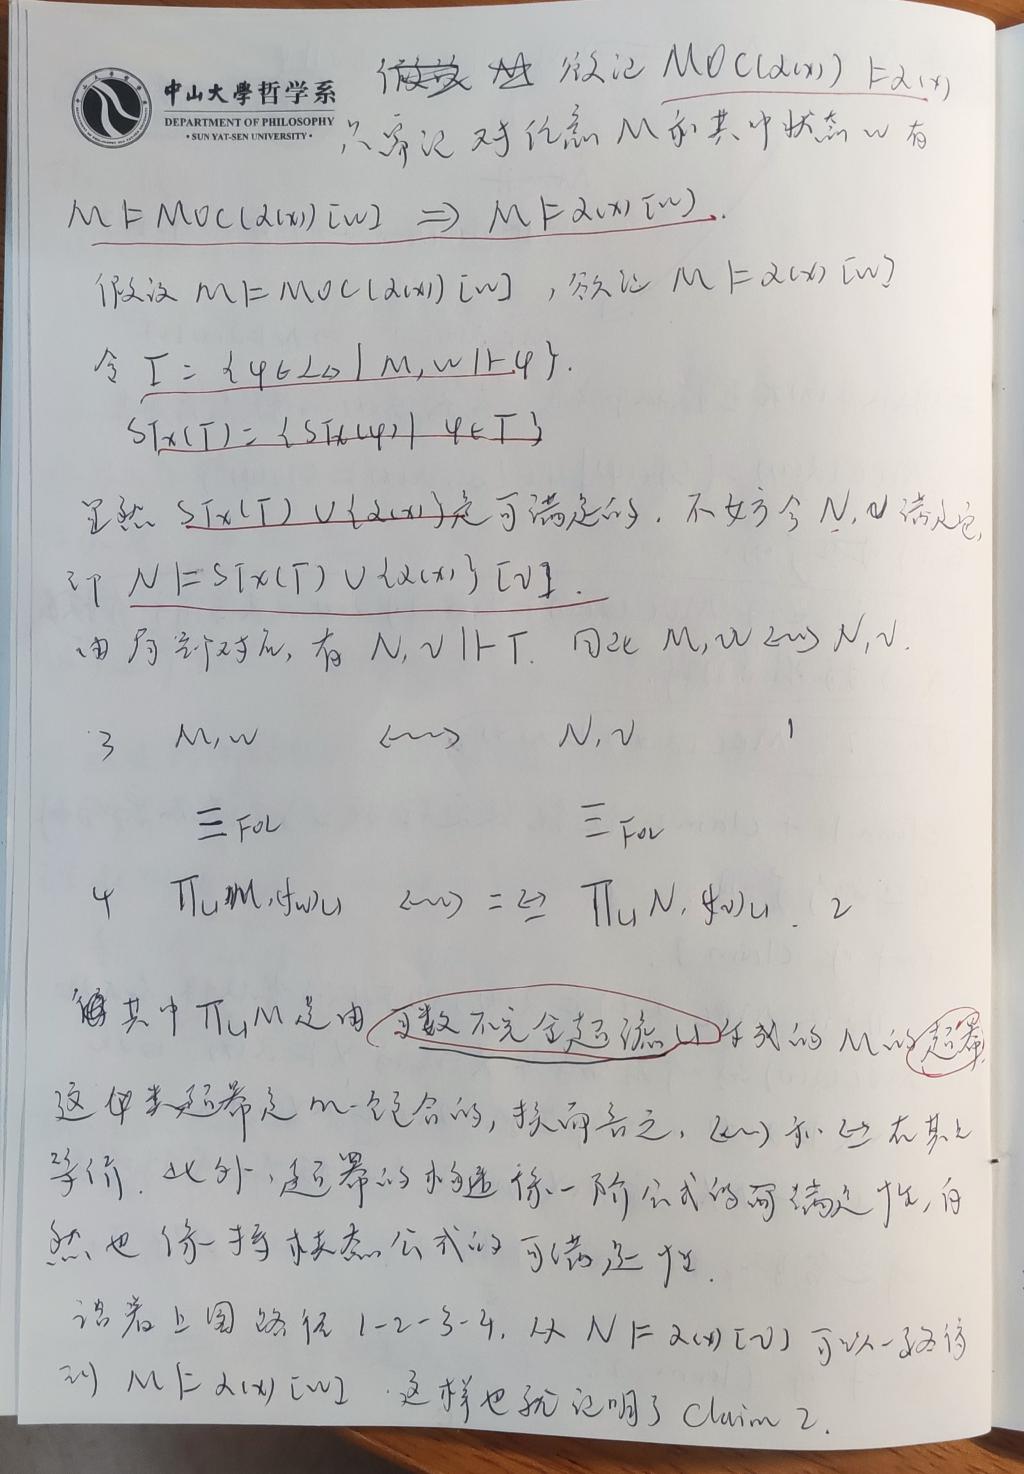 中山大學哲学系
DEPARTMENT OF PHILOSOPHY
·SUN YAT-SEN UNIVERSITY·
欲证 MOC(α(x)) ⊨ α(x)
只需证 对任意 M 和其中状态 w 有
M ⊨ MOC(α(x)) [w] ⇒ M ⊨ α(x) [w].
假设 M ⊨ MOC(α(x)) [w], 欲证 M ⊨ α(x) [w]
令 T = {φ ∈ L◇ | M, w ⊩ φ}.
STx(T) = {STx(φ) | φ ∈ T}
显然 STx(T) ∪ {α(x)} 是可满足的. 不妨令 N, v 满足它,
即 N ⊨ STx(T) ∪ {α(x)} [v].
由局部对应, 有 N, v ⊩ T. 因此 M, w ↭ N, v.
3 M, w ↭ N, v 1
≡FOL ≡FOL
4 ∏U M, (fw)U ↭ = ↔ ∏U N, (fv)U. 2
其中 ∏U M 是由可数不完全超滤 U 生成的 M 的超幂.
这种类超幂是 m-饱合的, 换而言之, ↭ 和 ↔ 在其上
等价. 此外, 超幂的构造保一阶公式的可满足性, 自
然也保持模态公式的可满足性.
沿着上图路径 1-2-3-4, 从 N ⊨ α(x) [v] 可以一路得
到 M ⊨ α(x) [w]. 这样也就证明了 Claim 2.